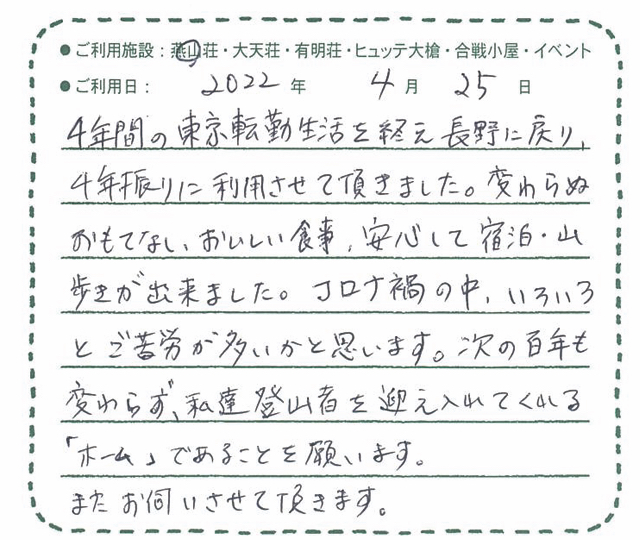 ● ご利用施設：燕山荘・大天荘・有明荘・ヒュッテ大槍・合戦小屋・イベント
● ご利用日： 2022 年 4 月 25 日
4年間の東京転勤生活を終え長野に戻り、
4年振りに利用させて頂きました。変わらぬ
おもてなし、おいしい食事、安心して宿泊・山
歩きが出来ました。コロナ禍の中、いろいろ
とご苦労が多いかと思います。次の百年も
変わらず、私達登山者を迎え入れてくれる
「ホーム」であることを願います。
またお伺いさせて頂きます。